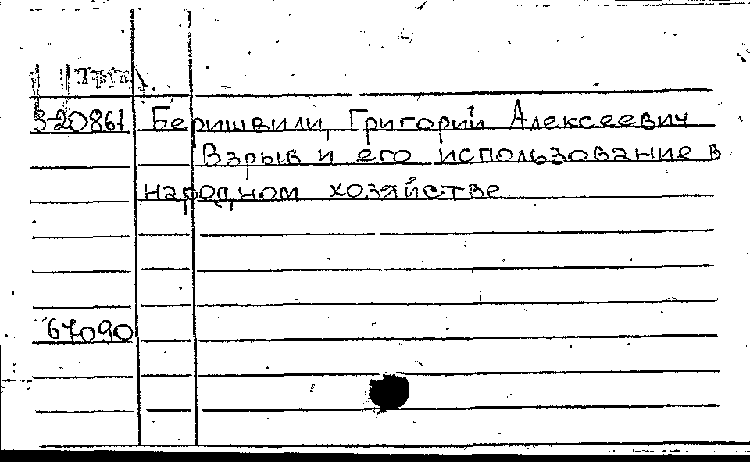 З-20861 Беришвили, Григорий Алексеевич
Взрыв и его использование в
народном хозяйстве
67090